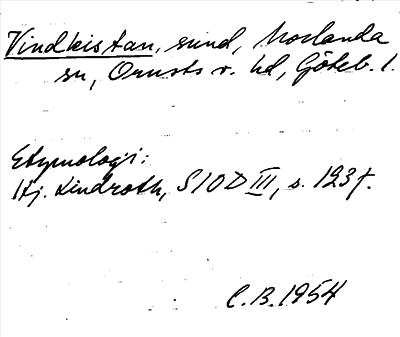 Vindkistan, sund, Morlanda
sn, Orusts v. hd, Göteb. l.
Etymologi:
Hj. Lindroth, SIOD III, s. 123 f.
C.B. 1954